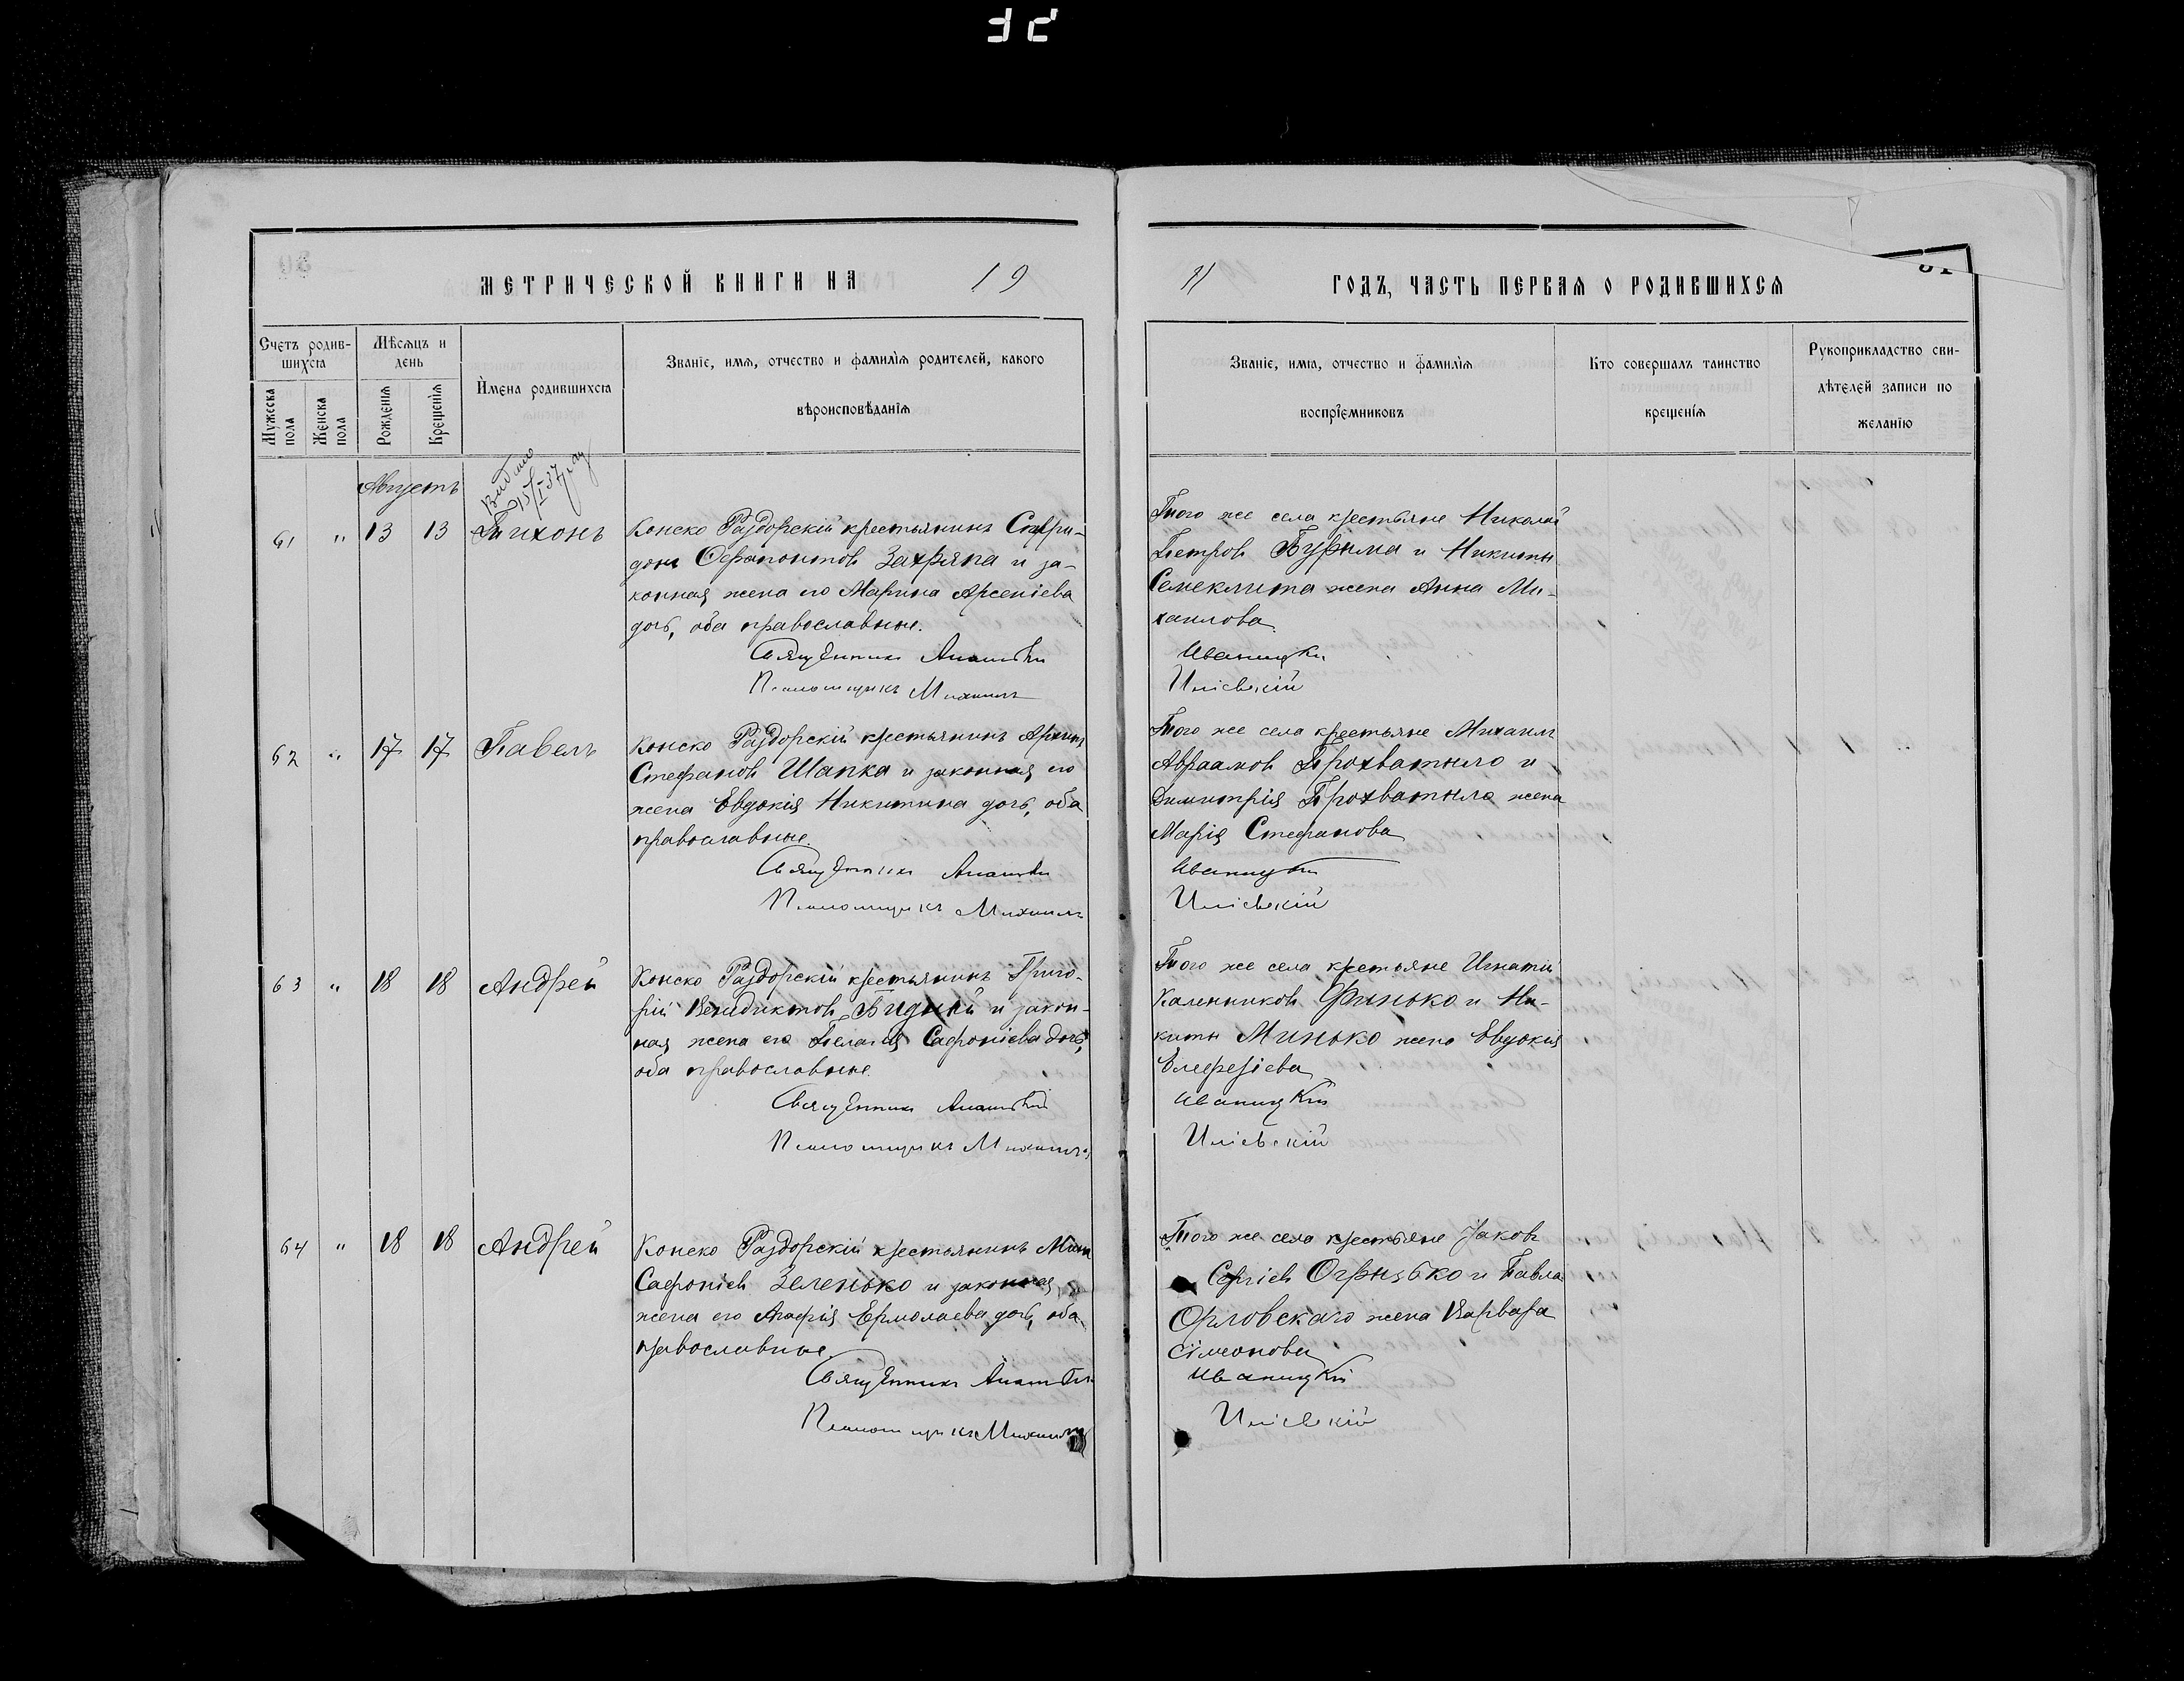 МЕТРИЧЕСКОЙ КНИГИ НА 19
Счетъ родив-
шихся
Мѣсяцъ и
день
Имена родившихся
Званіе, имя, отчество и фамилія родителей, какого
вѣроисповѣданія
Мужеска
пола
Женска
пола
Рожденія
Крещенія
Августъ
61 " 13 13 Тихонъ
Конско Раздорскій крестьянинъ Спири-
донъ Ферапонтовъ Захряпа и за-
конная жена его Марина Арсеніева
дочь, оба православные.
Священникъ Анатолій
Псаломщикъ Михаилъ
62 " 17 17 Павелъ
Конско Раздорскій крестьянинъ Архипъ
Стефановъ Шапка и законная его
жена Евдокія Никитина дочь, оба
православные.
Священникъ Анатолій
Псаломщикъ Михаилъ
63 " 18 18 Андрей
Конско Раздорскій крестьянинъ Григо-
рій Венидиктовъ Бидный и закон-
ная жена его Пелагія Сафоніева дочь,
оба православные.
Священникъ Анатолій
Псаломщикъ Михаилъ
64 " 18 18 Андрей
Конско Раздорскій крестьянинъ
Сафоніевъ Зеленько и законная
жена его Агафія Ермолаева дочь, оба
православные.
Священникъ Анатолій
Псаломщикъ Михаилъ
11 ГОДЪ, ЧАСТЬ ПЕРВАЯ О РОДИВШИХСЯ
Званіе, имя, отчество и фамилія
воспріемниковъ
Кто совершалъ таинство
крещенія
Рукоприкладство сви-
дѣтелей записи по
желанію
Того же села крестьяне Николай
Петровъ Бурыма и Никиты
Семеклита жена Анна Ми-
хаилова.
Иваницкій
Иліевскій
Того же села крестьяне Михаилъ
Авраамовъ Прохватыло и
Димитрія Прохватыло жена
Марія Стефанова
Иваницкій
Иліевскій
Того же села крестьяне Игнатій
Каленниковъ Финько и Ни-
киты Минько жена Евдокія
Елеферіева
Иваницкій
Иліевскій
Того же села крестьяне Яковъ
Сергіевъ Огрызько и Павла
Орловскаго жена Варвара
Сімеонова
Иваницкій
Иліевскій